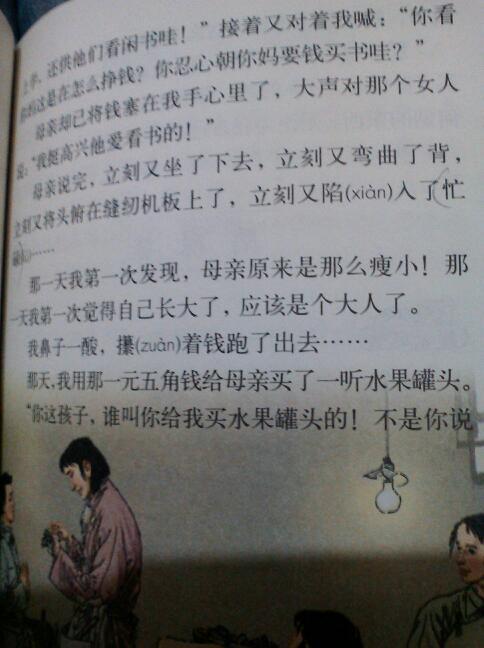 上学，还供他们看闲书哇！”接着又对着我喊：“你看
这是在怎么挣钱？你忍心朝你妈要钱买书哇？”
母亲却已将钱塞在我手心里了，大声对那个女人
说：“我挺高兴他爱看书的！”
母亲说完，立刻又坐了下去，立刻又弯曲了背，
立刻又将头俯在缝纫机板上了，立刻又陷(xiàn)入了忙
碌……
那一天我第一次发现，母亲原来是那么瘦小！那
一天我第一次觉得自己长大了，应该是个大人了。
我鼻子一酸，攥(zuàn)着钱跑了出去……
那天，我用那一元五角钱给母亲买了一听水果罐头。
“你这孩子，谁叫你给我买水果罐头的！不是你说